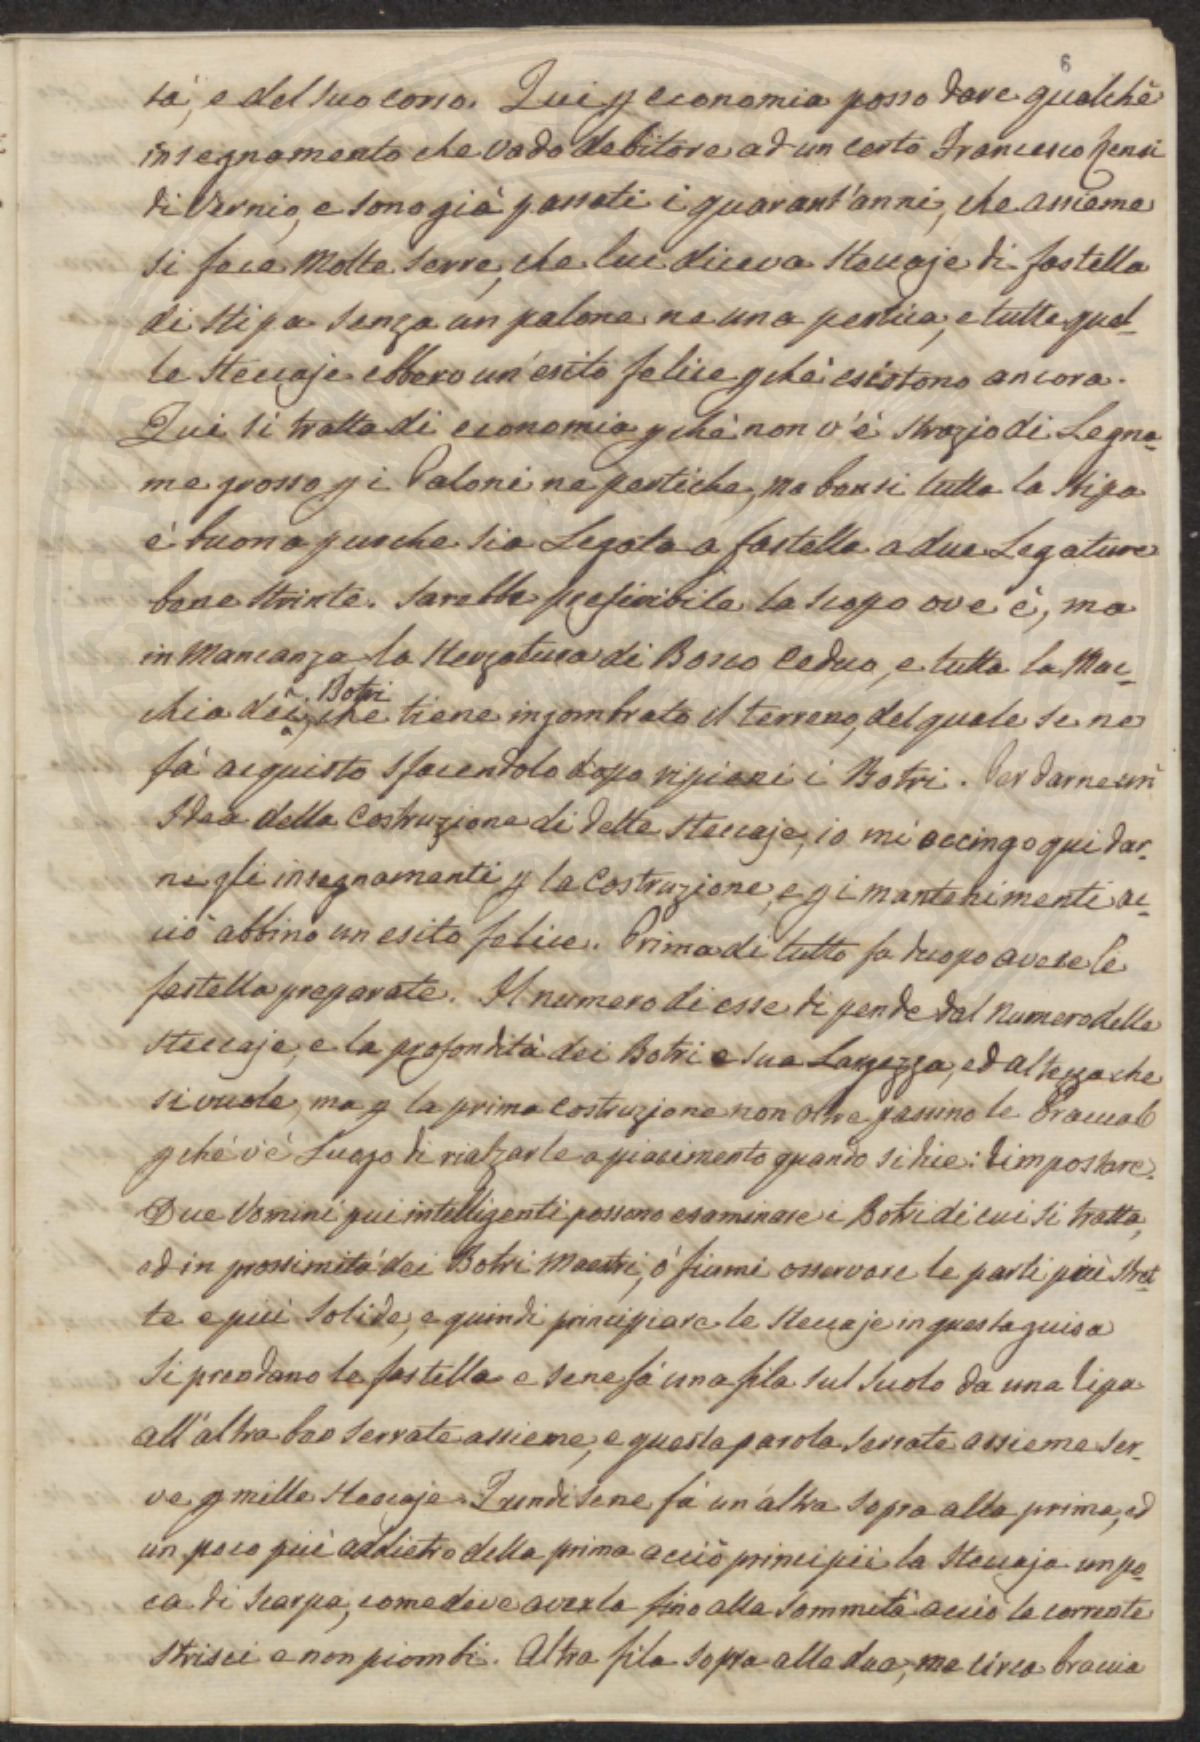 6
tà, e del suo corso. Qui p economia posso dare qualche
insegnamento che vado debitore ad un certo Francesco
di Vernio, e sono già passati i quarant'anni, che assieme
si fece molte serre, che lui diceva steccaje di fastella
di stipa senza un palone ne una pertica, e tutte quel-
le steccaje ebbero un'esito felice pchè esistono ancora.
Qui si tratta di economia pchè non v'è strazio di Legna-
me grosso p i Paloni ne pertiche, ma bensi tutta la stipa
è buona purche sia Legata a fastella a due Legature
bene strinte. Sarebbe preferibile la scopa ove è, ma
in mancanza la sterzatura di Bosco Ceduo, e tutta la Mac-
chia dei Botri che tiene ingombrato il terreno, del quale se ne
fà acquisto sfacendolo dopo ripieni i Botri. Per darne un'
Idea della costruzione di dette steccaje, io mi accingo qui dar-
ne gli insegnamenti p la Costruzione, e p i mantenimenti ac-
ciò abbino un esito felice. Prima di tutto fa duopo avere le
fastella preparate. Il numero di esse dipende dal numero delle
steccaje, e la profondità dei Botri e sua Largezza, ed altezza che
si vuole, ma p la prima costruzione non oltre passino le Braccia 6
pchè v'è Luogo di rialzarle a piacimento quando si dice: d'impostare.
Due Uomini qui intelligenti possono esaminare i Botri di cui si tratta,
ed in prossimità dei Botri Maestri, ò fiumi osservare le parti più stret-
te e più solide, e quindi principiare le steccaje in questa guisa
Si prendano le fastella e se ne fà una fila sul suolo da una ripa
all'altra ben serrate assieme, e questa parola serrate assieme ser-
ve p mille steccaje. Quindi se ne fà un'altra sopra alla prima, ed
un poco più addietro della prima acciò principii la steccaja un po-
ca di scarpa, come deve averla fino alla sommità acciò le corrente
strisci e non piombi. Altra fila sopra alle due, ma circa braccia